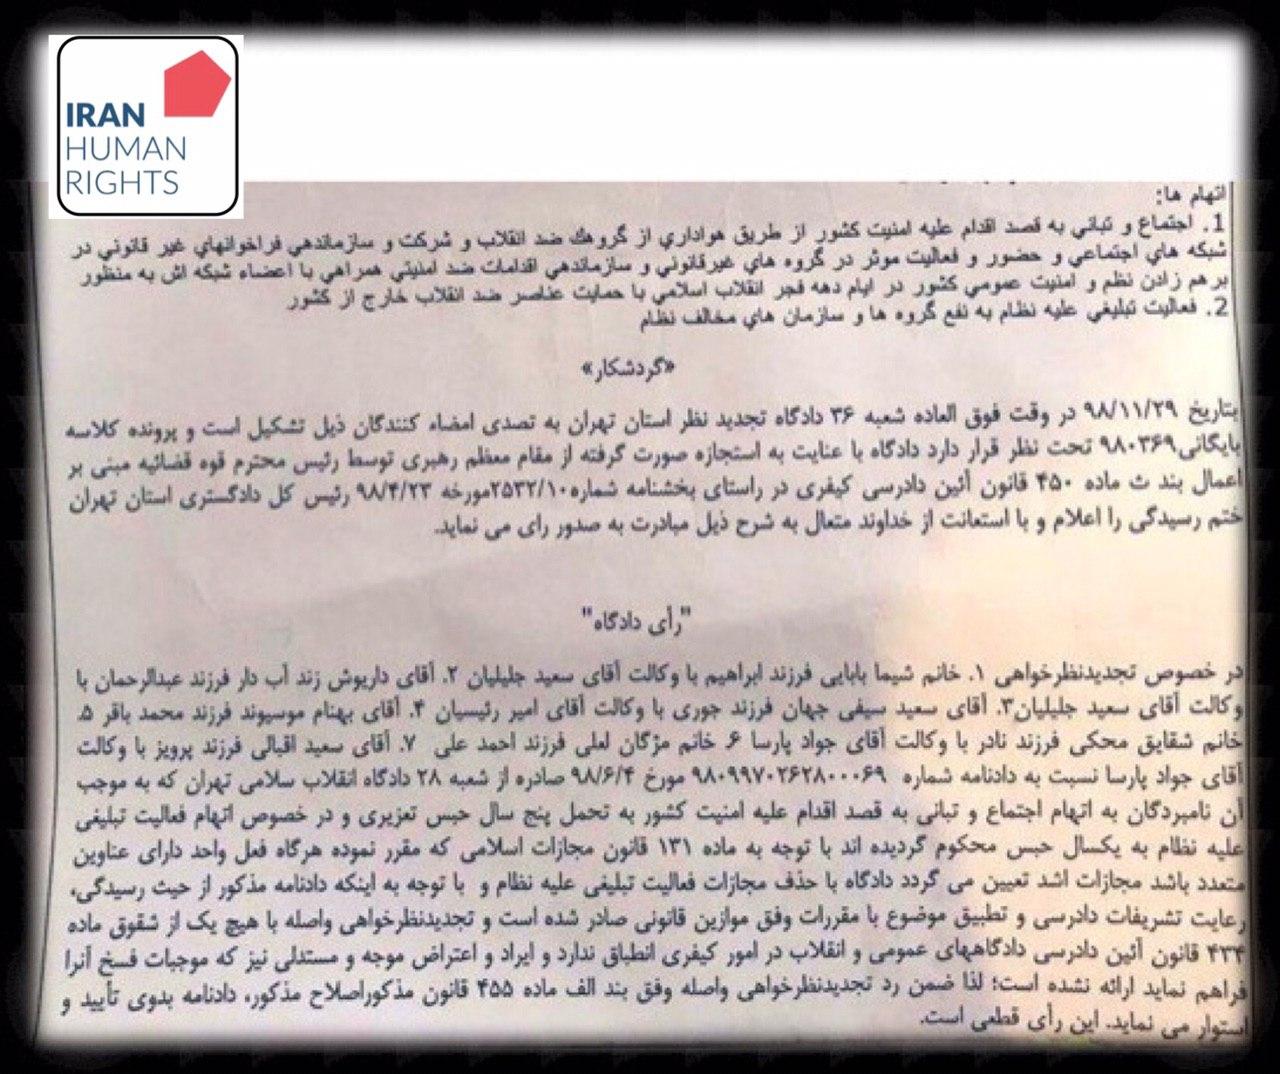 IRAN
HUMAN
RIGHTS
اتهام ها:
1. اجتماع و تباني به قصد اقدام عليه امنيت كشور از طريق هواداري از گروهك ضد انقلاب و شركت و سازماندهي فراخوانهاي غير قانوني در
شبكه هاي اجتماعي و حضور و فعاليت موثر در گروه هاي غيرقانوني و سازماندهي اقدامات ضد امنيتي همراهي با اعضاء شبكه اش به منظور
برهم زدن نظم و امنيت عمومي كشور در ايام دهه فجر انقلاب اسلامي با حمايت عناصر ضد انقلاب خارج از كشور
2. فعاليت تبليغي عليه نظام به نفع گروه ها و سازمان هاي مخالف نظام
«گردشکار»
بتاریخ ۹۸/۱۱/۲۹ در وقت فوق العاده شعبه ۳۶ دادگاه تجدید نظر استان تهران به تصدی امضاء کنندگان ذیل تشکیل است و پرونده کلاسه
بایگانی۹۸۰۳۶۹ تحت نظر قرار دارد دادگاه با عنایت به استجازه صورت گرفته از مقام معظم رهبری توسط رئیس محترم قوه قضائیه مبنی بر
اعمال بند ث ماده ۴۵۰ قانون آئین دادرسی کیفری در راستای بخشنامه شماره۲۵۳۲/۱۰مورخه ۹۸/۴/۲۳ رئیس کل دادگستری استان تهران
ختم رسیدگی را اعلام و با استعانت از خداوند متعال به شرح ذیل مبادرت به صدور رای می نماید.
"رأی دادگاه"
در خصوص تجدیدنظرخواهی ۱. خانم شیما بابایی فرزند ابراهیم با وکالت آقای سعید جلیلیان ۲. آقای داریوش زند آب دار فرزند عبدالرحمان با
وکالت آقای سعید جلیلیان۳. آقای سعید سیفی جهان فرزند جوری با وکالت آقای امیر رئیسیان ۴. آقای بهنام موسیوند فرزند محمد باقر ۵.
خانم شقایق محکی فرزند نادر با وکالت آقای جواد پارسا ۶. خانم مژگان لعلی فرزند احمد علی ۷. آقای سعید اقبالی فرزند پرویز با وکالت
آقای جواد پارسا نسبت به دادنامه شماره ۹۸۰۹۹۷۰۲۶۲۸۰۰۰۶۹ مورخ ۹۸/۶/۴ صادره از شعبه ۲۸ دادگاه انقلاب سلامی تهران که به موجب
آن نامبردگان به اتهام اجتماع و تبانی به قصد اقدام علیه امنیت کشور به تحمل پنج سال حبس تعزیری و در خصوص اتهام فعالیت تبلیغی
علیه نظام به یکسال حبس محکوم گردیده اند با توجه به ماده ۱۳۱ قانون مجازات اسلامی که مقرر نموده هرگاه فعل واحد دارای عناوین
متعدد باشد مجازات اشد تعیین می گردد دادگاه با حذف مجازات فعالیت تبلیغی علیه نظام و با توجه به اینکه دادنامه مذکور از حیث رسیدگی،
رعایت تشریفات دادرسی و تطبیق موضوع با مقررات وفق موازین قانونی صادر شده است و تجدیدنظرخواهی واصله با هیچ یک از شقوق ماده
۴۳۴ قانون آئین دادرسی دادگاههای عمومی و انقلاب در امور کیفری انطباق ندارد و ایراد و اعتراض موجه و مستدلی نیز که موجبات فسخ آنرا
فراهم نماید ارائه نشده است؛ لذا ضمن رد تجدیدنظرخواهی واصله وفق بند الف ماده ۴۵۵ قانون مذکوراصلاح مذکور، دادنامه بدوی تأیید و
استوار می نماید. این رأی قطعی است.